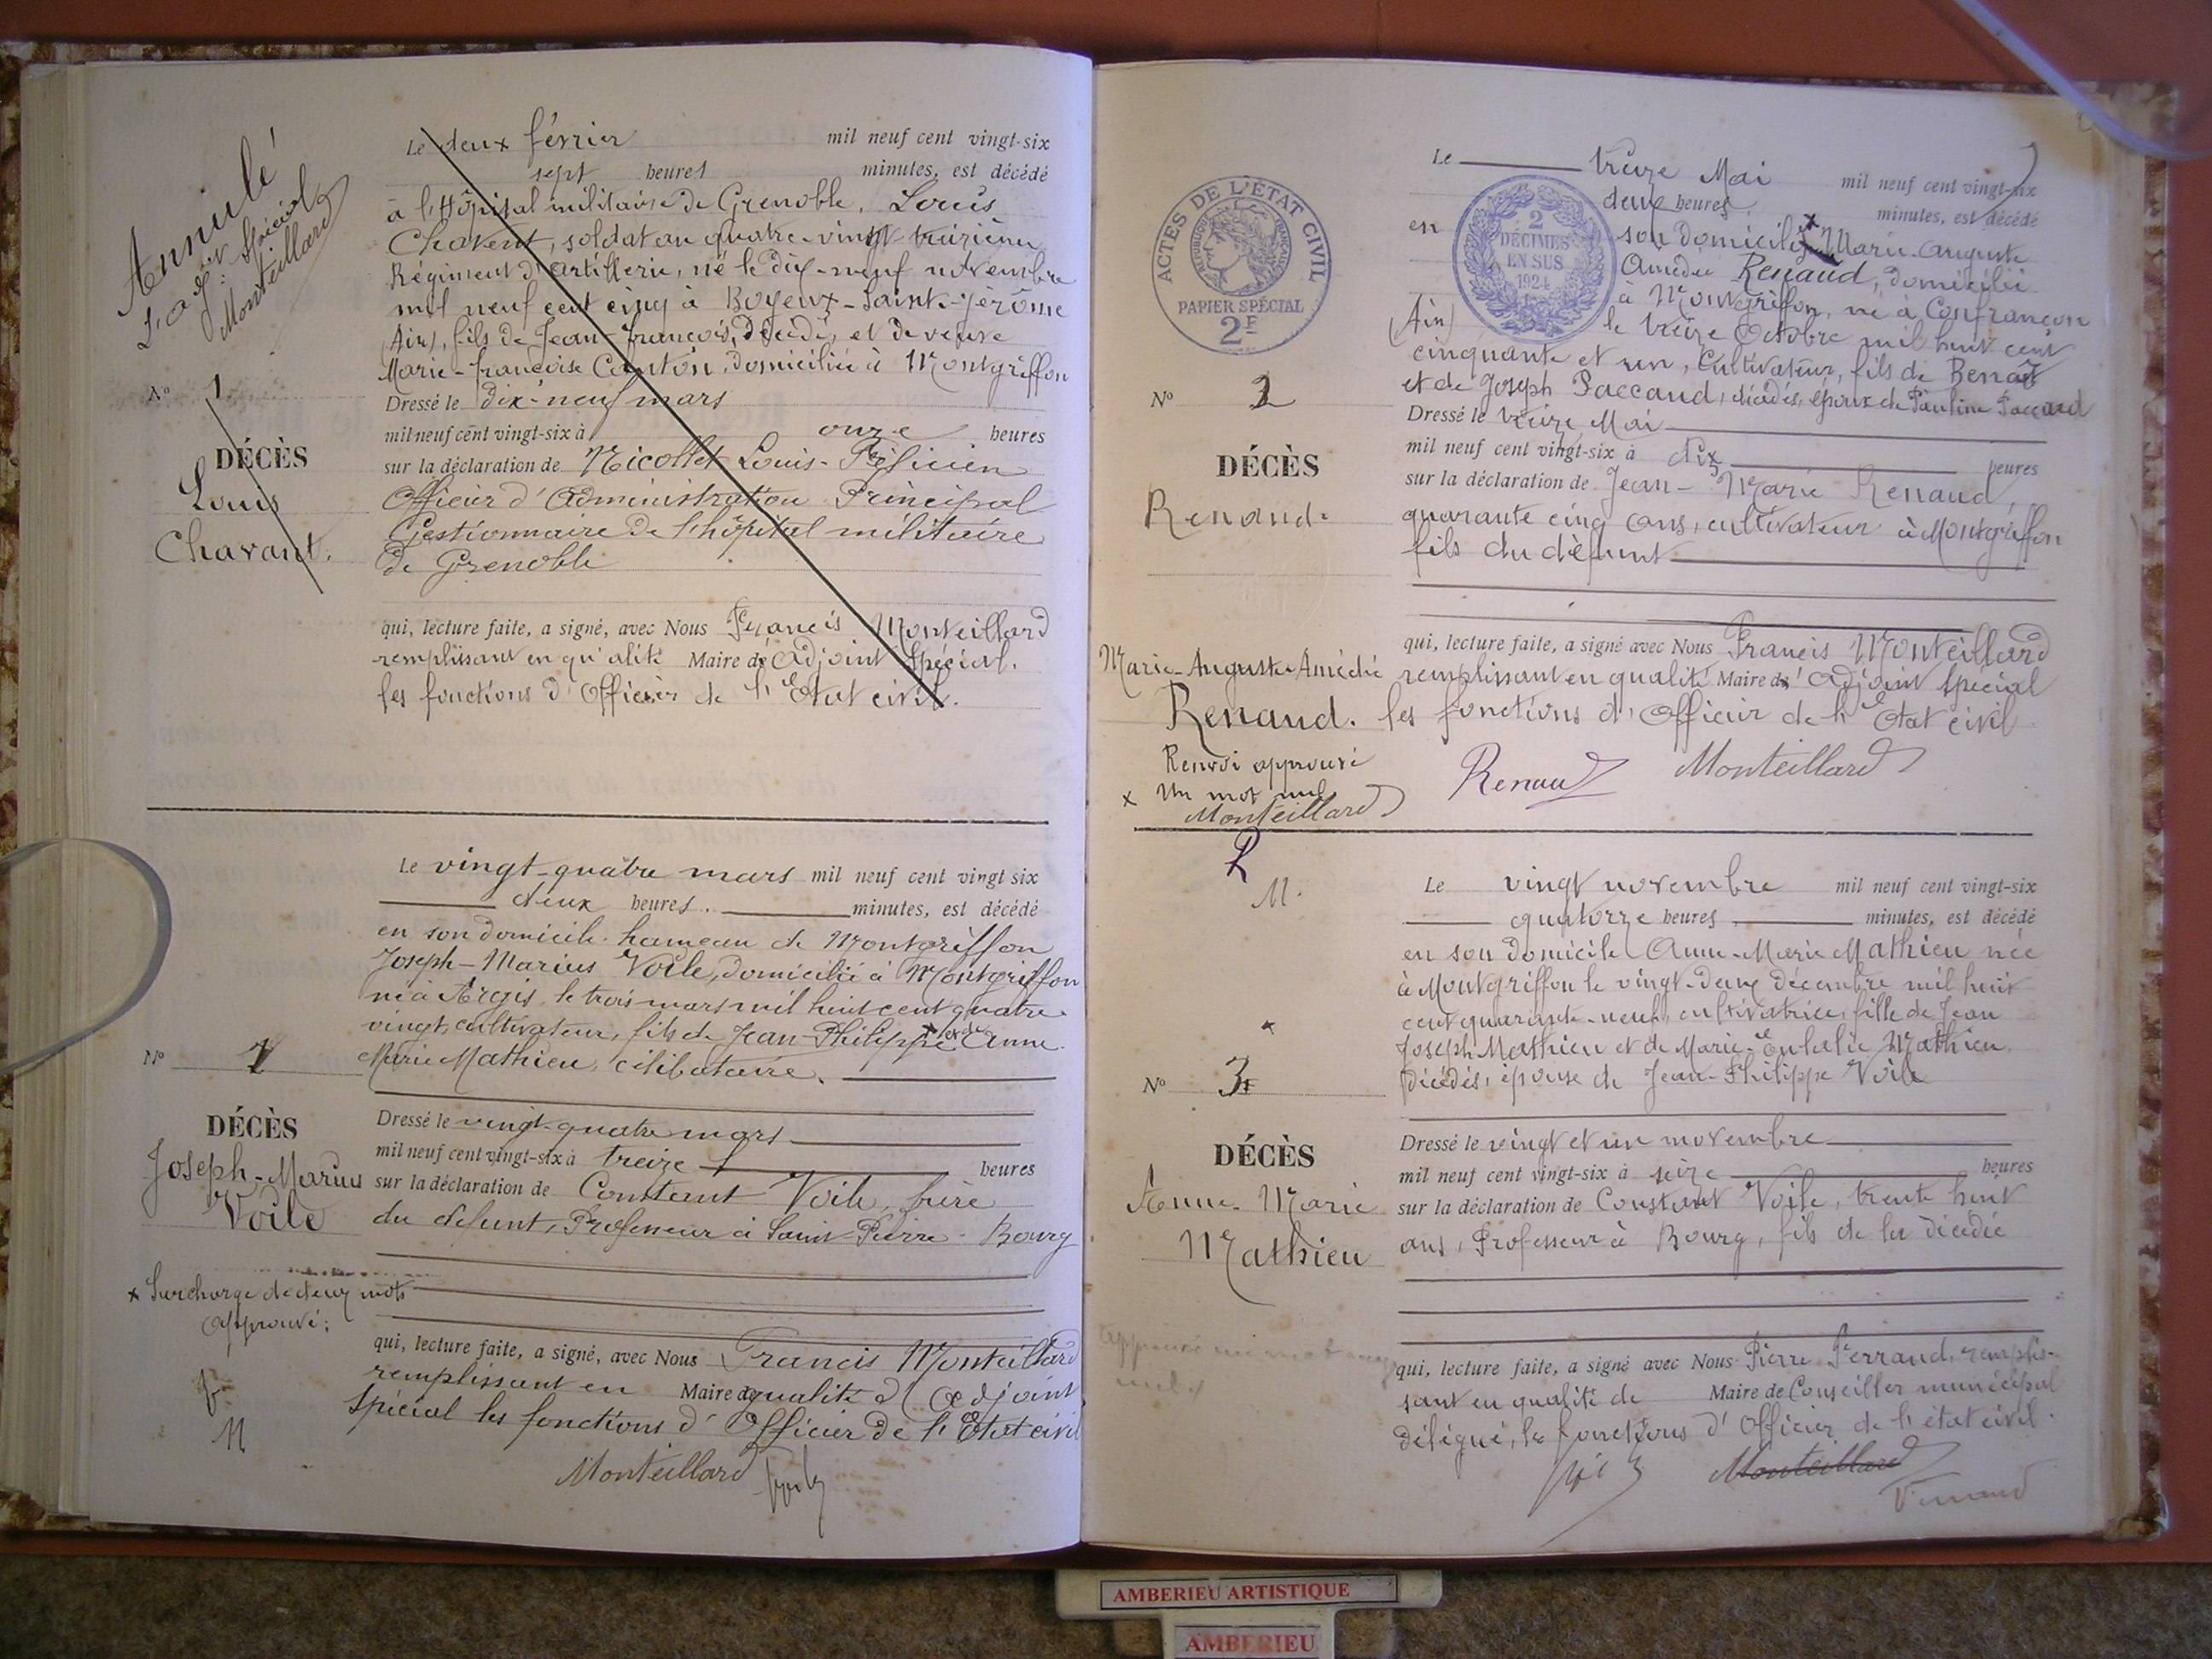 Annulé
L'adjt Spécial
Monteillard
Le deux février mil neuf cent vingt-six
sept heures minutes, est décédé
à l'Hôpital militaire de Grenoble, Louis
Chavent, soldat au quatre-vingt treizième
Régiment d'artillerie, né le dix-neuf novembre
mil neuf cent cinq à Boyeux-Saint-Jérôme
(Ain), fils de Jean-François, décédé, et de veuve
Marie-françoise Canton, domiciliée à Montgriffon
Nº 1
DÉCÈS
Louis
Chavant.
Dressé le dix-neuf mars
mil neuf cent vingt-six à onze heures
sur la déclaration de Nicollet Louis-Féficien
Officier d'Administration Principal
Gestionnaire de l'hôpital militaire
de Grenoble
qui, lecture faite, a signé, avec Nous Francis Monteillard
remplissant en qualité Maire de adjoint Spécial.
les fonctions d'Officier de l'Etat civil.
Le vingt-quatre mars mil neuf cent vingt six
deux heures. minutes, est décédé
en son domicile hameau de Montgriffon
Joseph-Marius Voile, domicilié à Montgriffon
né à Argis le trois mars mil huit cent quatre
vingt, cultivateur, fils de Jean-Philippe x et de Anne
Marie Mathieu, célibataire.
Nº 1
DÉCÈS
Joseph-Marius
Voile
Dressé le vingt-quatre mars
mil neuf cent vingt-six à treize heures
sur la déclaration de Constant Voile, frère
du défunt, Professeur à Saint Pierre-Bourg
x Surcharge de deux mots
approuvé:
M
qui, lecture faite, a signé, avec Nous Francis Monteillard
remplissant en Maire de qualité d'adjoint
Spécial les fonctions d'Officier de l'Etat civil
Monteillard
ACTES DE L'ÉTAT CIVIL
RÉPUBLIQUE FRANÇAISE
PAPIER SPÉCIAL
2F
2
DÉCIMES
EN SUS
1924
Le treize Mai mil neuf cent vingt-six
deux heures minutes, est décédé
en son domicile x Marie-Auguste
Amédée Renaud, domicilié
à Montgriffon, né à Confrançon
(Ain) le treize Octobre mil huit cent
cinquante et un, Cultivateur, fils de Benoît
et de Joseph Paccand, décédés, époux de Pauline Paccard
Nº 2
DÉCÈS
Renaud.
Dressé le treize Mai
mil neuf cent vingt-six à dix heures
sur la déclaration de Jean-Marie Renaud,
quarante cinq ans, cultivateur à Montgriffon
fils du défunt
Marie-Auguste-Amédée
Renaud.
Renvoi approuvé
x Un mot nul
Monteillard
R
qui, lecture faite, a signé avec Nous Francis Monteillard
remplissant en qualité Maire de d'adjoint Spécial
les fonctions d'Officier de l'Etat civil
Renaud Monteillard
M.
x
Le vingt novembre mil neuf cent vingt-six
quatorze heures minutes, est décédé
en son domicile Anne-Marie Mathieu née
à Montgriffon le vingt-deux décembre mil huit
cent quarante-neuf, cultivatrice, fille de Jean
Joseph Mathieu et de Marie-Eulalie Mathieu
décédés, épouse de Jean-Philippe Voile
Nº 3
DÉCÈS
Anne-Marie
Mathieu
Dressé le vingt et un novembre
mil neuf cent vingt-six à seize heures
sur la déclaration de Constant Voile, trente huit
ans, Professeur à Bourg, fils de la décédée
qui, lecture faite, a signé avec Nous Pierre Ferrand, remplis-
sant en qualité de Maire de Conseiller municipal
délégué, les fonctions d'Officier de l'état civil.
Monteillard
AMBERIEU ARTISTIQUE
AMBERIEU